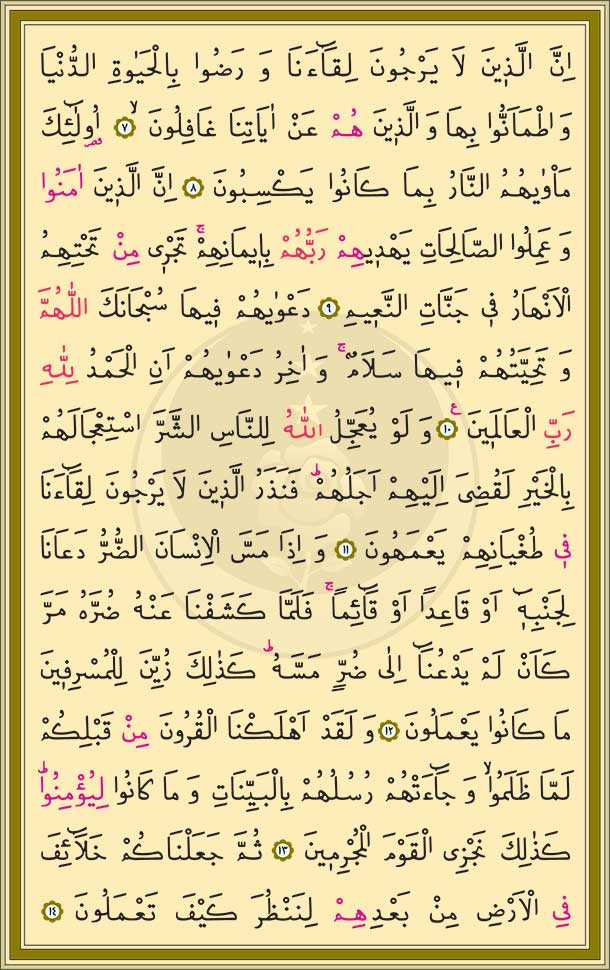 اِنَّ الَّذ۪ينَ لَا يَرْجُونَ لِقَٓاءَنَا وَ رَضُوا بِالْحَيٰوةِ الدُّنْيَا
وَ اطْمَاَنُّوا بِهَا وَ الَّذ۪ينَ هُمْ عَنْ اٰيَاتِنَا غَافِلُونَۙ ﴿٧﴾ اُو۬لٰٓئِكَ
مَاْوٰيهُمُ النَّارُ بِمَا كَانُوا يَكْسِبُونَ ﴿٨﴾ اِنَّ الَّذ۪ينَ اٰمَنُوا
وَ عَمِلُوا الصَّالِحَاتِ يَهْد۪يهِمْ رَبُّهُمْ بِا۪يمَانِهِمْۚ تَجْر۪ي مِنْ تَحْتِهِمُ
الْاَنْهَارُ ف۪ي جَنَّاتِ النَّع۪يمِ ﴿٩﴾ دَعْوٰيهُمْ ف۪يهَا سُبْحَانَكَ اللّٰهُمَّ
وَ تَحِيَّتُهُمْ ف۪يهَا سَلَامٌۚ وَ اٰخِرُ دَعْوٰيهُمْ اَنِ الْحَمْدُ لِلّٰهِ
رَبِّ الْعَالَم۪ينَ ﴿١٠﴾ ع وَ لَوْ يُعَجِّلُ اللّٰهُ لِلنَّاسِ الشَّرَّ اسْتِعْجَالَهُمْ
بِالْخَيْرِ لَقُضِيَ اِلَيْهِمْ اَجَلُهُمْؕ فَنَذَرُ الَّذ۪ينَ لَا يَرْجُونَ لِقَٓاءَنَا
ف۪ي طُغْيَانِهِمْ يَعْمَهُونَ ﴿١١﴾ وَ اِذَا مَسَّ الْاِنْسَانَ الضُّرُّ دَعَانَا
لِجَنْبِه۪ٓ اَوْ قَاعِدًا اَوْ قَٓائِمًاۚ فَلَمَّا كَشَفْنَا عَنْهُ ضُرَّهُ مَرَّ
كَاَنْ لَمْ يَدْعُنَٓا اِلٰى ضُرٍّ مَسَّهُؕ كَذٰلِكَ زُيِّنَ لِلْمُسْرِف۪ينَ
مَا كَانُوا يَعْمَلُونَ ﴿١٢﴾ وَ لَقَدْ اَهْلَكْنَا الْقُرُونَ مِنْ قَبْلِكُمْ
لَمَّا ظَلَمُواۙ وَ جَٓاءَتْهُمْ رُسُلُهُمْ بِالْبَيِّنَاتِ وَ مَا كَانُوا لِيُؤْمِنُواؕ
كَذٰلِكَ نَجْزِي الْقَوْمَ الْمُجْرِم۪ينَ ﴿١٣﴾ ثُمَّ جَعَلْنَاكُمْ خَلَٓائِفَ
فِي الْاَرْضِ مِنْ بَعْدِهِمْ لِنَنْظُرَ كَيْفَ تَعْمَلُونَ ﴿١٤﴾